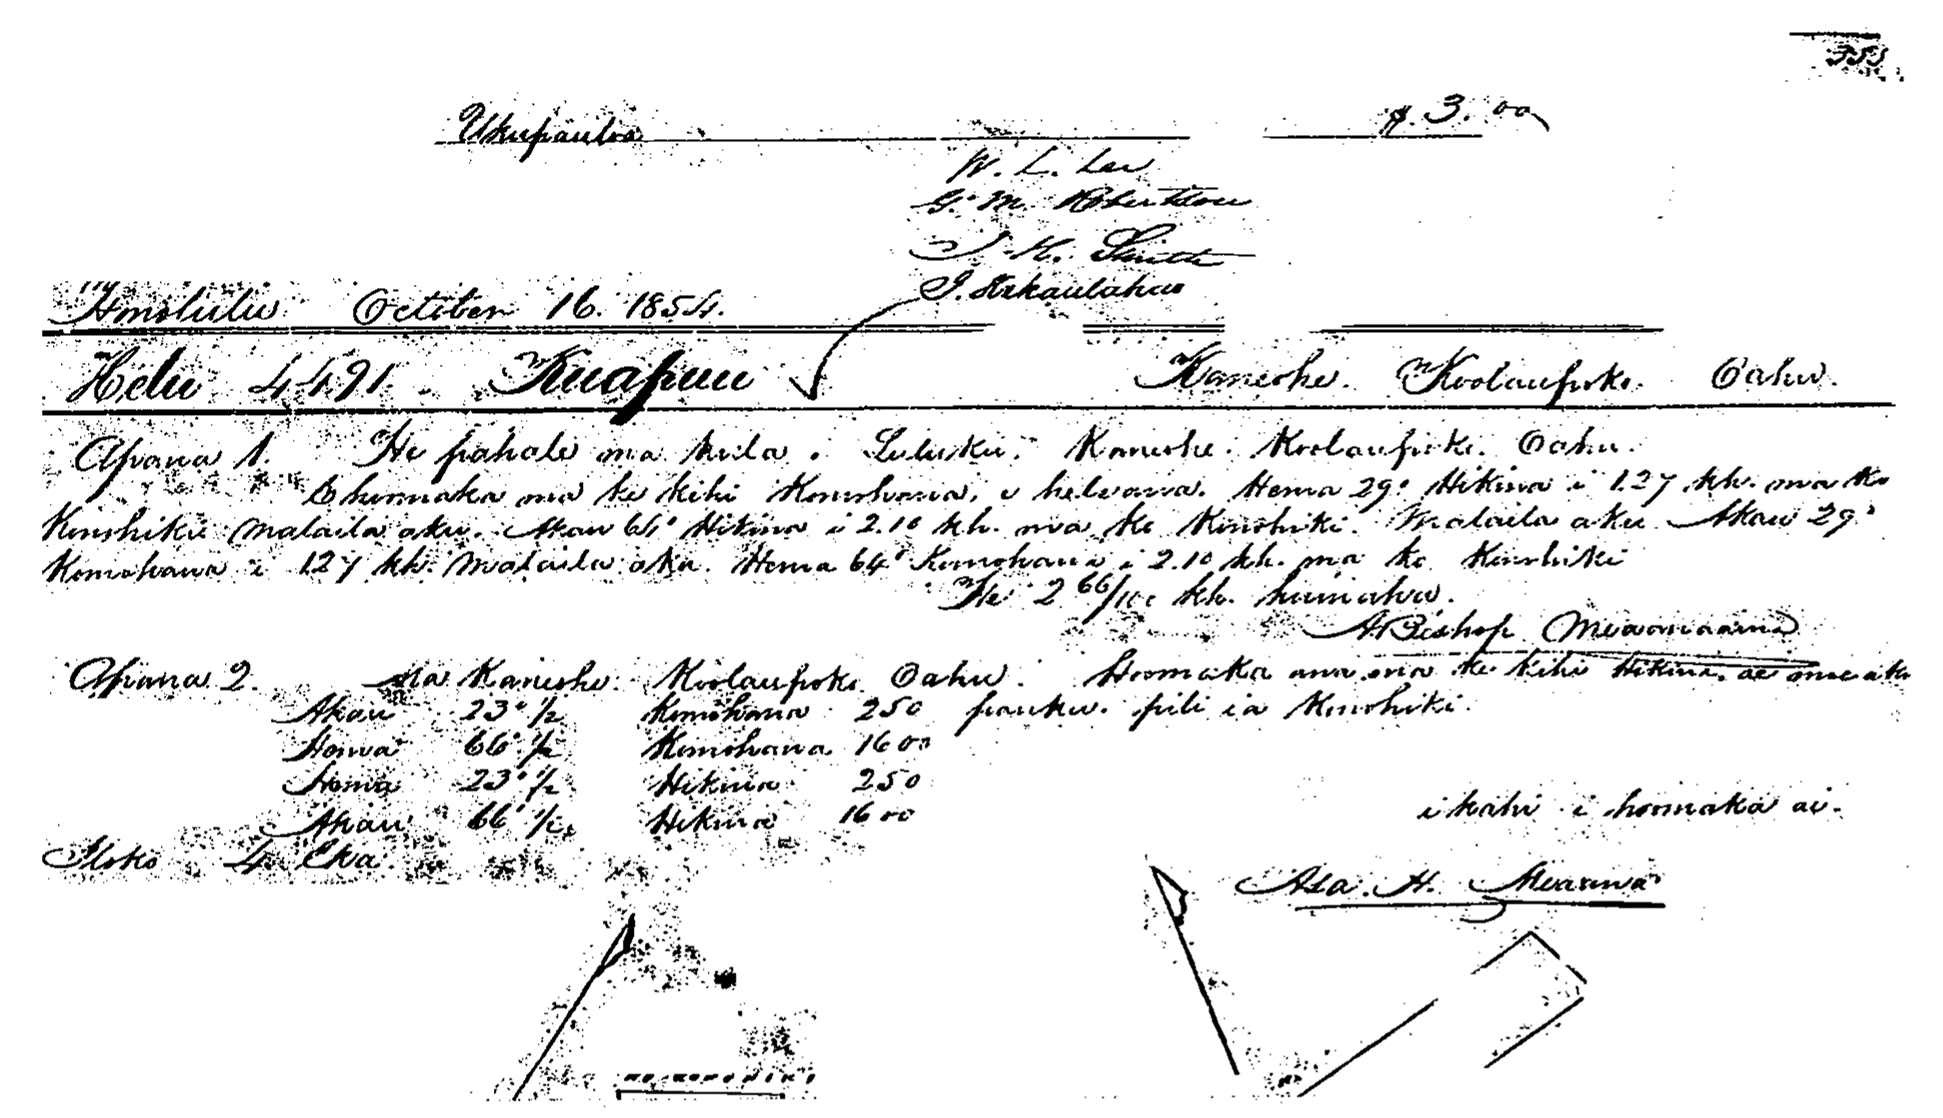 353
Ukupauloa $3.00
W. L. Lee
G. M. Robertson
J. H. Smith
J. Kekaulahao
Honolulu October 16. 1854.
Helu 4491. Kuapuu Kaneohe. Koolaupoko. Oahu.
Apana 1. He pahale ma kula. Luluku. Kaneohe. Koolaupoko. Oahu.
E hoomaka ma ke kihi Komohana, e holo ana. Hema 29° Hikina i 1.27 kh. ma ko
Konohiki malaila aku. Akau 64° Hikina i 2.10 kh. ma ko Konohiki. Malaila aku Akau 29°
Komohana i 1.27 kh. Malaila aku. Hema 64° Komohana i 2.10 kh. ma ko Konohiki
He 2 66/100 kh. huinaha.
A Bishop Mea ana aina
Apana 2. Ma Kaneohe. Koolaupoko Oahu. Hoomaka ana ma ke kihi Hikina, ae
Akau 23° 1/2 Komohana 250 pauku. pili i a Konohiki.
Hema 66° 1/2 Komohana 1600
Hema 23° 1/2 Hikina 250
Akau 66° 1/2 Hikina 1600
i kahi i hoomaka ai.
Iloko 4 Eka.
Asa. H. Mea ana